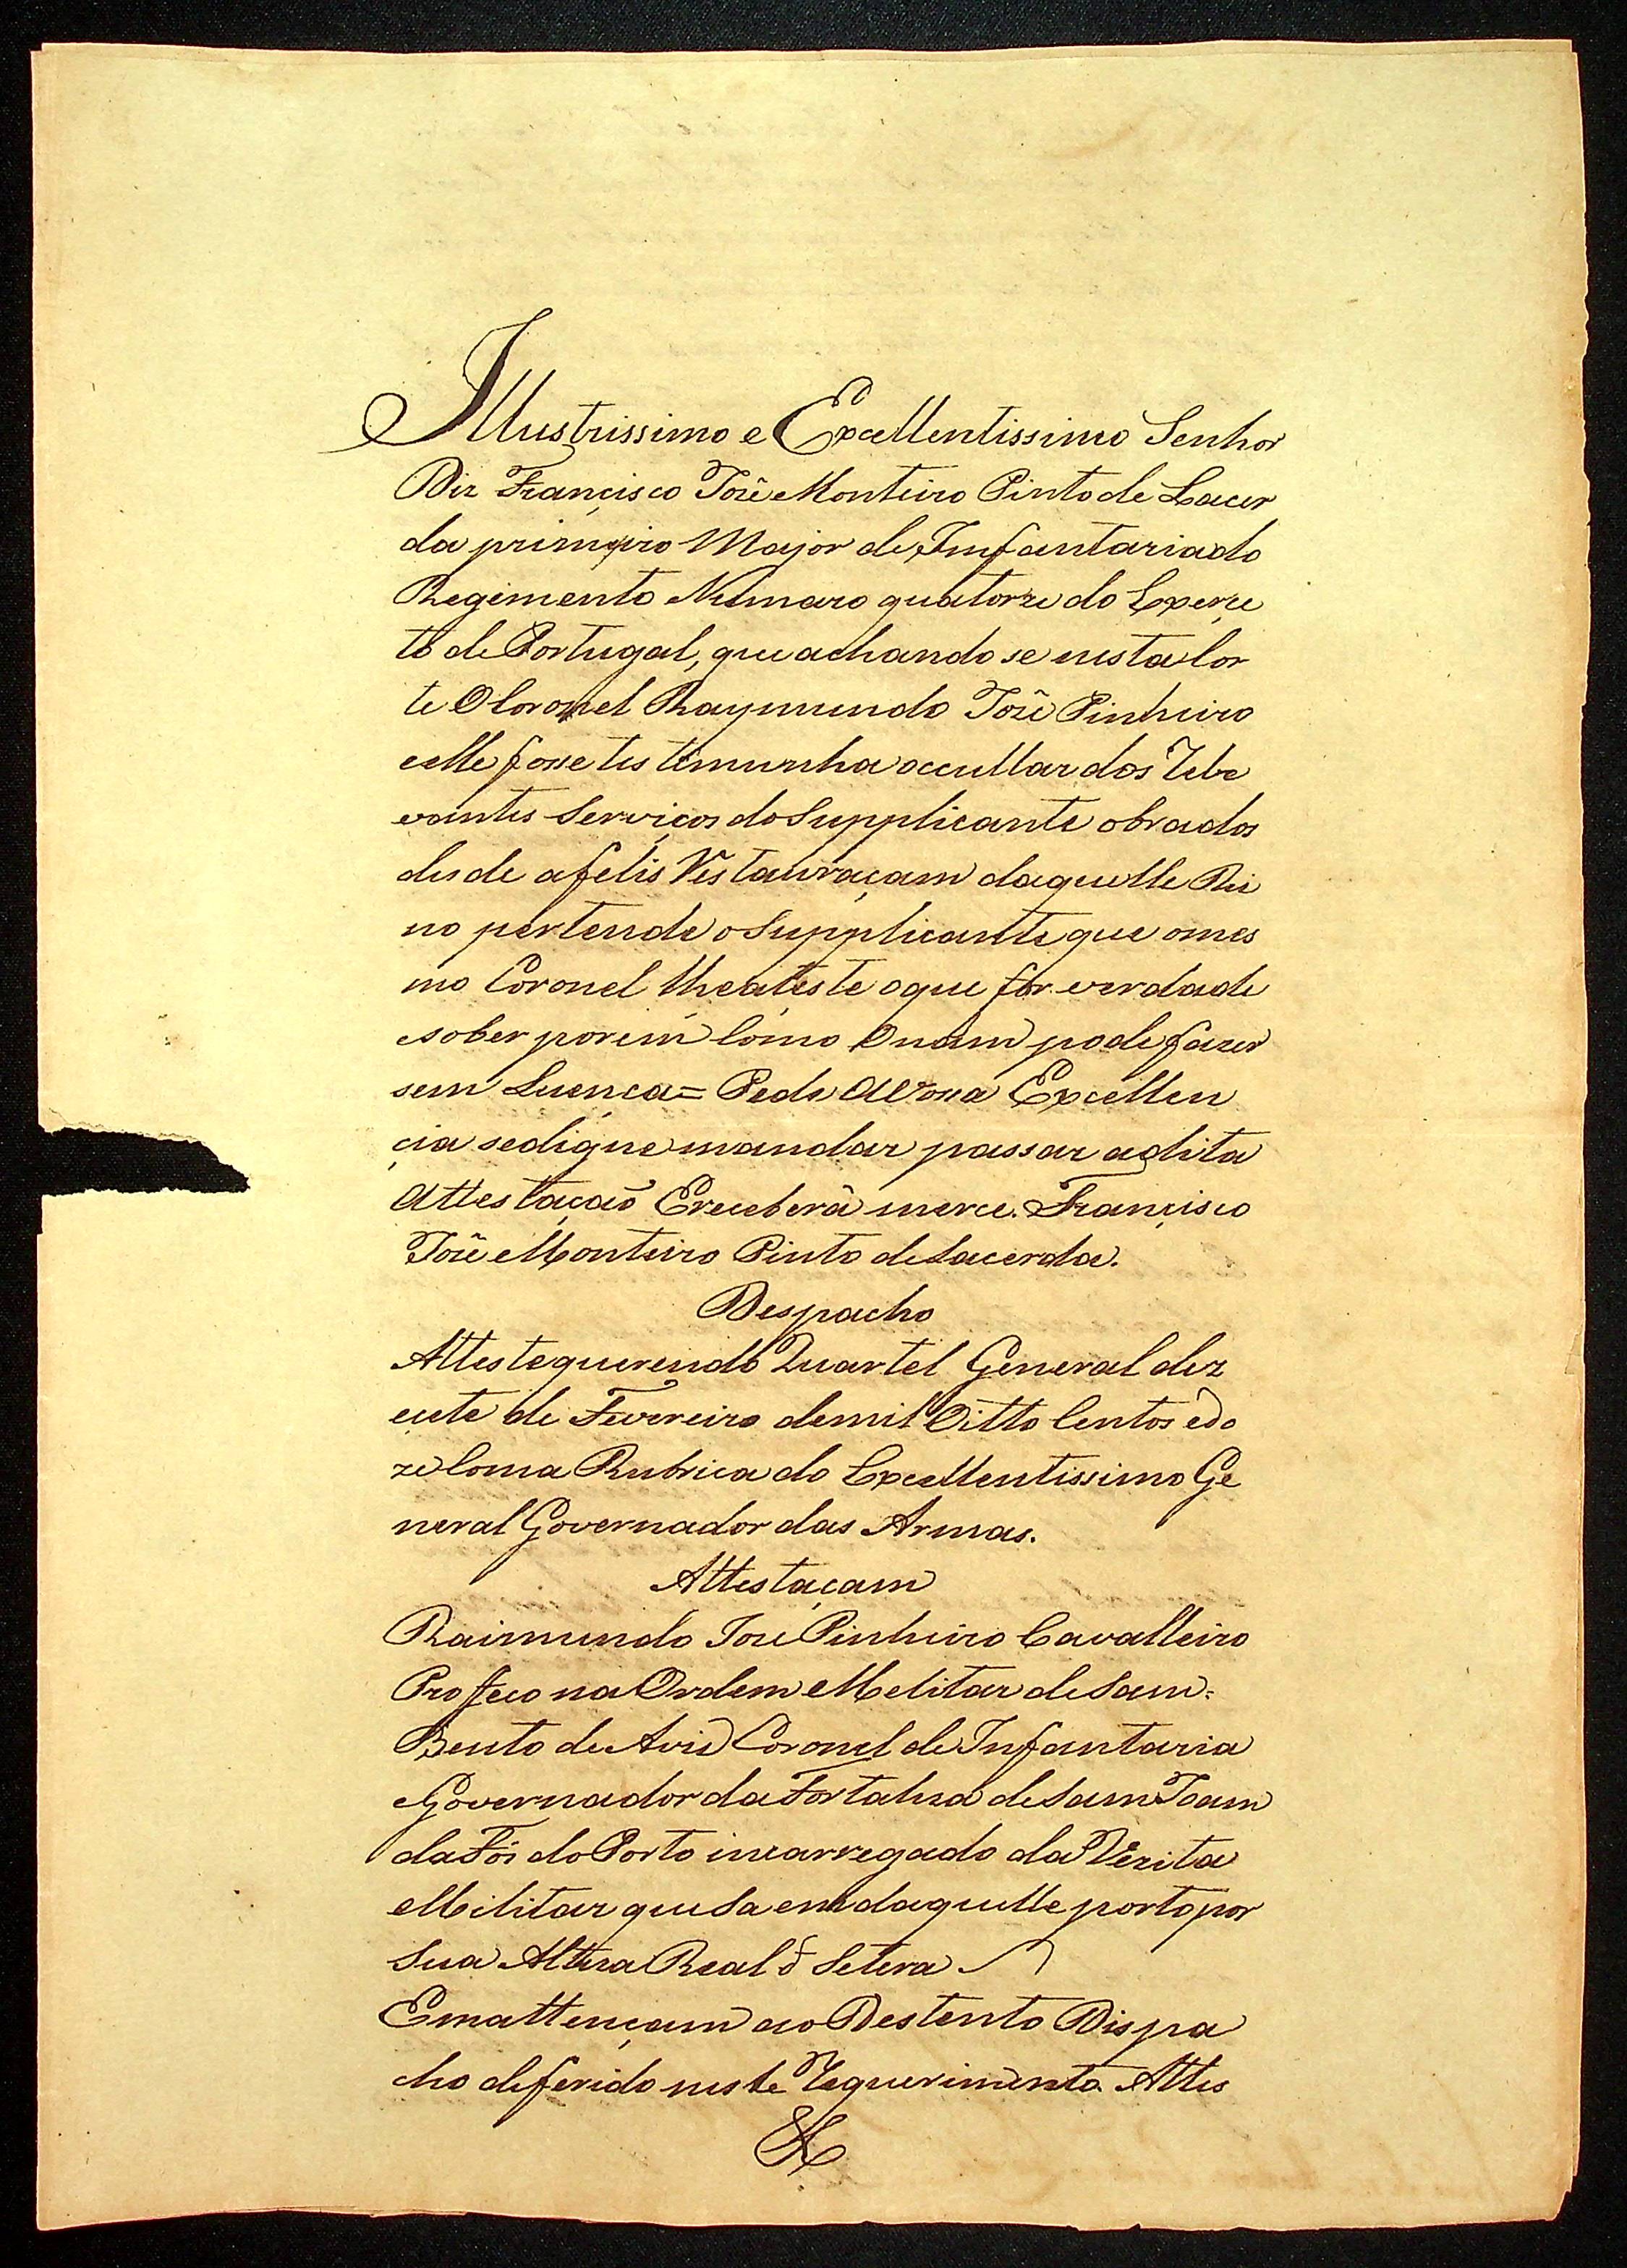 Illustrissimo e Excellentissimo Senhor
Diz Francisco Jozê Monteiro Pinto de Lacer
da primeiro Major de Infantaria do
Regimento Numaro quatorze do Exerçe
to de Portugal, que achando se nesta Cor
te O Coronel Raymundo Jozê Pinheiro
e elle fosse testemunha occullar dos Rele
vantes Serviços do Supplicante obrados
desde a felis Restauraçam daquelle Rei
no pertende o Supplicante que o mes
mo Coronel lhe ateste o que for verdade
e sober porem Como O nam pode fazer
sem Lecença = Pede A Vossa Excellen
çia se digne mandar passar a dita
Attestação E receberâ merce. Françisco
Jozê Monteiro Pinto de Lacerda.
Despacho
Atteste querendo Quartel General dez
eçete de Fevereiro de mil Oitto Centos e do
ze Com a Rubrica do Excellentissimo Ge
neral Governador das Armas.
Attestaçam
Raimundo Jozé Pinheiro Cavalleiro
Profeco na Ordem Melitar de Sam=
Bento de Avis Coronel de Infantaria
Governador da Fortaleza de Sam Joam
da Fós do Porto incarregado da Vezita
Militar que Sa em daquelle porto por
Sua Alteza Real & Setera
Em attençam ao Destento Dispa
cho deferido neste Requerimento Attes